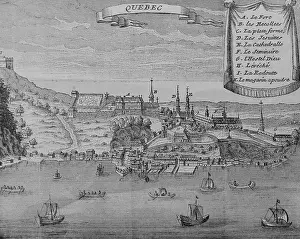 QUÉBEC
A. Le Fort
B. les Recollets
C. La plate forme
D. Les Jesuites
E. La Cathedralle
F. Le Seminaire
G. L'Hostel Dieu
H. L'évêché
I. La Redoute
L. le magazin a poudre